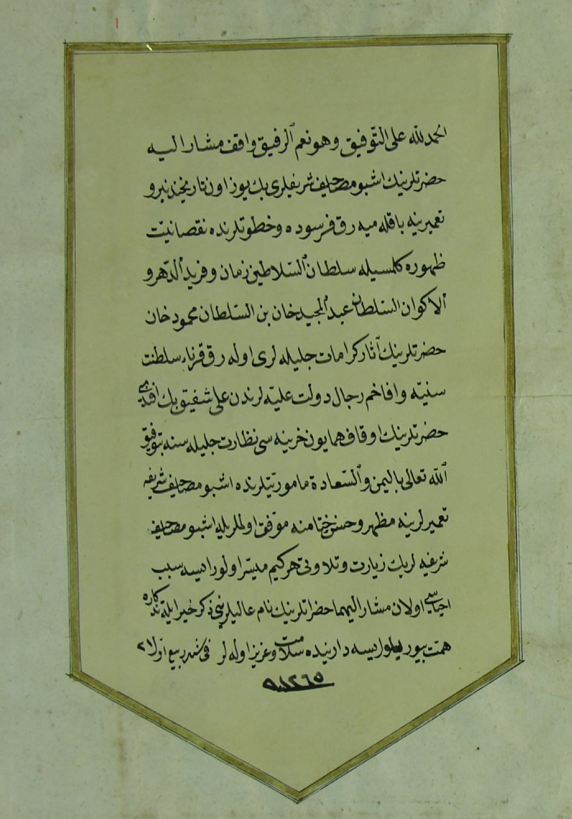 الحمد لله على التوفيق وهو نعم الرفيق واقف مشار اليه
حضرتلرينك اشبو مصاحف شريفلرى بك يوز اون تاريخندنبرو
تعميرينه باقلمه ميه رق فرسوده وخطوتلرنده نقصانيت
ظهوره كلمسيله سلطان السلاطين زمان وفريد الدهر و
الاكوان السلطان عبد المجيد خان بن السلطان محمود خان
حضرتلرينك آثار كرامات جليله لرى اوله رق قرناء سلطنت
سنيه وافاخم رجال دولت عليه لرندن على شفيق بك افندى
حضرتلرينك اوقاف همايون خزينه سى نظارت جليله سنه بتوفيق
الله تعالى باليمن والسعادة ماموريتلرنده اشبو مصاحف شريفه
تعميرلرينه مظهر وحسن ختامنه موفق اولملريله اشبو مصاحف
شريفه لريك زيارت وتلاوتى هركيم ميسر اولور ايسه سبب
اولان مشار اليهما حضراتلرينك نام عاليلرينى ذكر خير ايله
همت بيوريلور ايسه دارينده سلامت وعزيز اوله لر فى شهر ربيع اول ٢
١٢٦٥